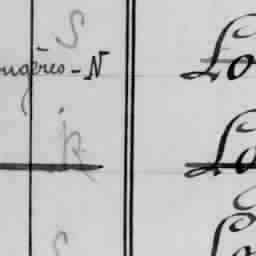 S
ougères-N Lo
R Lo
S Lo